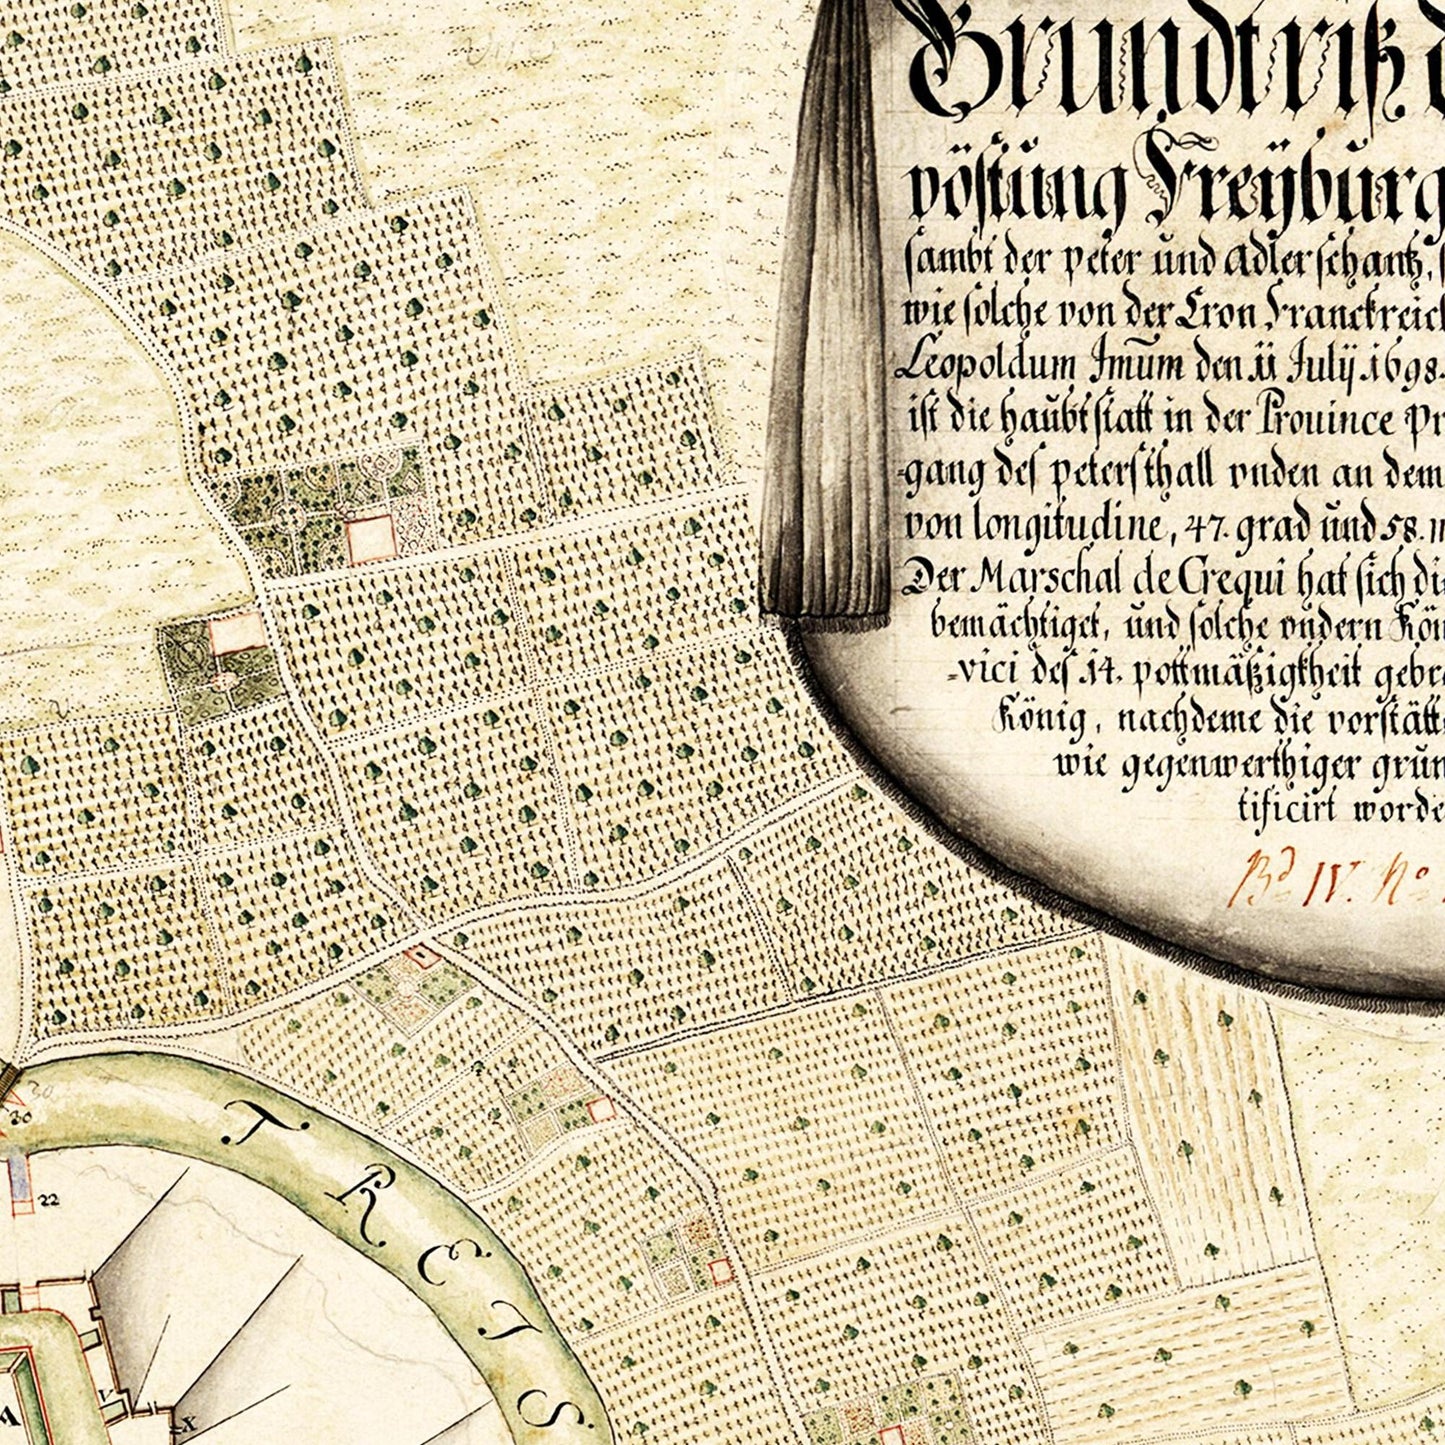 Grundtriß d
vöstung Freÿburg
sambt der peter und Adlerschantz, s
wie solche von der Cron Franckreich
Leopoldum Imum den 11 Julÿ 1698.
ist die haubtstatt in der Prouince Pr
gang des petersthall vnden an dem
von longitudine, 47. grad und 58. m
Der Marschal de Crequi hat sich die
bemächtiget, und solche vndern Kön
-vici des 14. pottmäßigkheit gebra
König, nachdeme die vorstätt
wie gegenwerthiger grun
tificirt worde
Bd IV. No.
30
30
22
TREIS
V
X
A